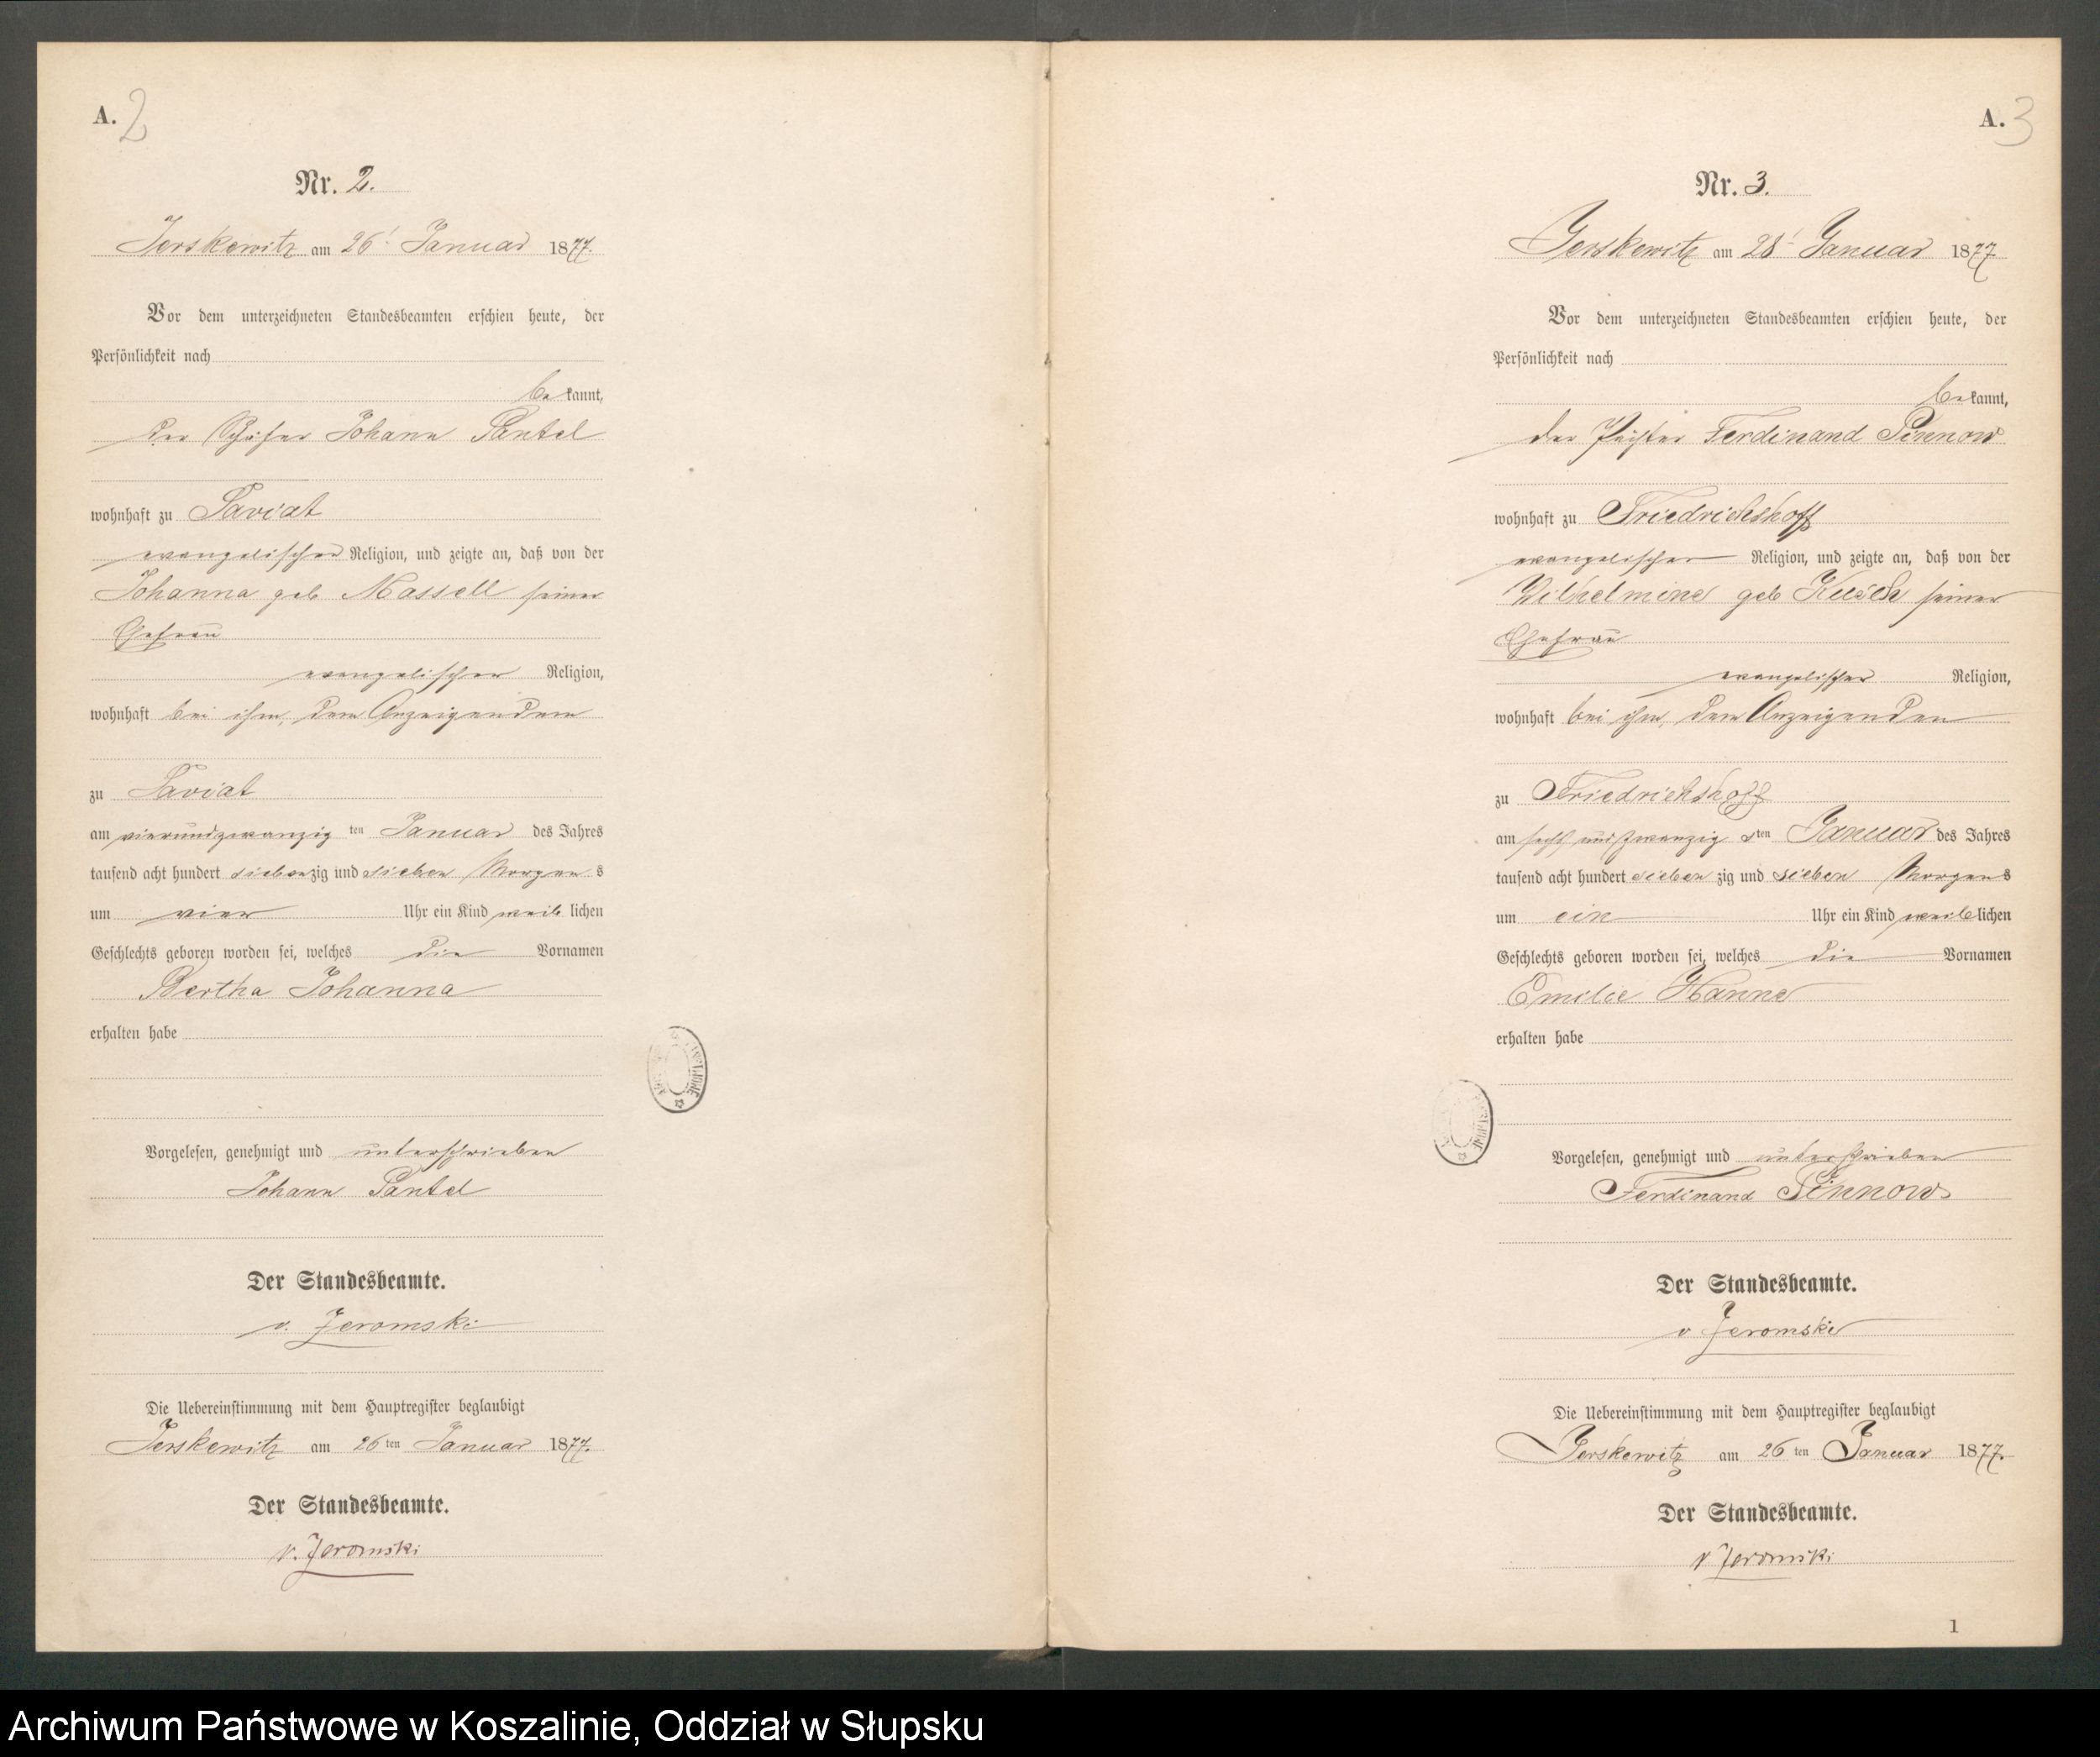 A. 2
Nr. 2.
Jerskewitz am 26t Januar 1877.
Vor dem unterzeichneten Standesbeamten erschien heute, der
Persönlichkeit nach
bekannt,
der Schäfer Johann Pantel
wohnhaft zu Saviat
evangelischer Religion, und zeigte an, daß von der
Johanna geb Massell seiner
Ehefrau
evangelischer Religion,
wohnhaft bei ihm, dem Anzeigendem
zu Saviat
am vierundzwanzig ten Januar des Jahres
tausend acht hundert siebenzig und sieben Morgens
um vier Uhr ein Kind weiblichen
Geschlechts geboren worden sei, welches die Vornamen
Bertha Johanna
erhalten habe
Vorgelesen, genehmigt und unterschrieben
Johann Pantel
Der Standesbeamte.
v. Jeromski
Die Uebereinstimmung mit dem Hauptregister beglaubigt
Jerskewitz am 26 ten Januar 1877.
Der Standesbeamte.
v. Jeromski
A. 3
Nr. 3.
Jerskewitz am 28t Januar 1877
Vor dem unterzeichneten Standesbeamten erschien heute, der
Persönlichkeit nach
bekannt,
der Ferdinand Pinnow
wohnhaft zu Friedrichshoff
evangelischer Religion, und zeigte an, daß von der
Wilhelmine geb seiner
Ehefrau
evangelischer Religion,
wohnhaft bei ihm, dem Anzeigenden
zu Friedrichshoff
am sechs und zwanzig sten Januar des Jahres
tausend acht hundert siebenzig und sieben Morgens
um ein Uhr ein Kind weiblichen
Geschlechts geboren worden sei, welches die Vornamen
Emilie Hanne
erhalten habe
Vorgelesen, genehmigt und unterschrieben
Ferdinand Pinnow
Der Standesbeamte.
v Jeromski
Die Uebereinstimmung mit dem Hauptregister beglaubigt
Jerskewitz am 26 ten Januar 1877.
Der Standesbeamte.
v Jeromski
1
Archiwum Państwowe w Koszalinie, Oddział w Słupsku